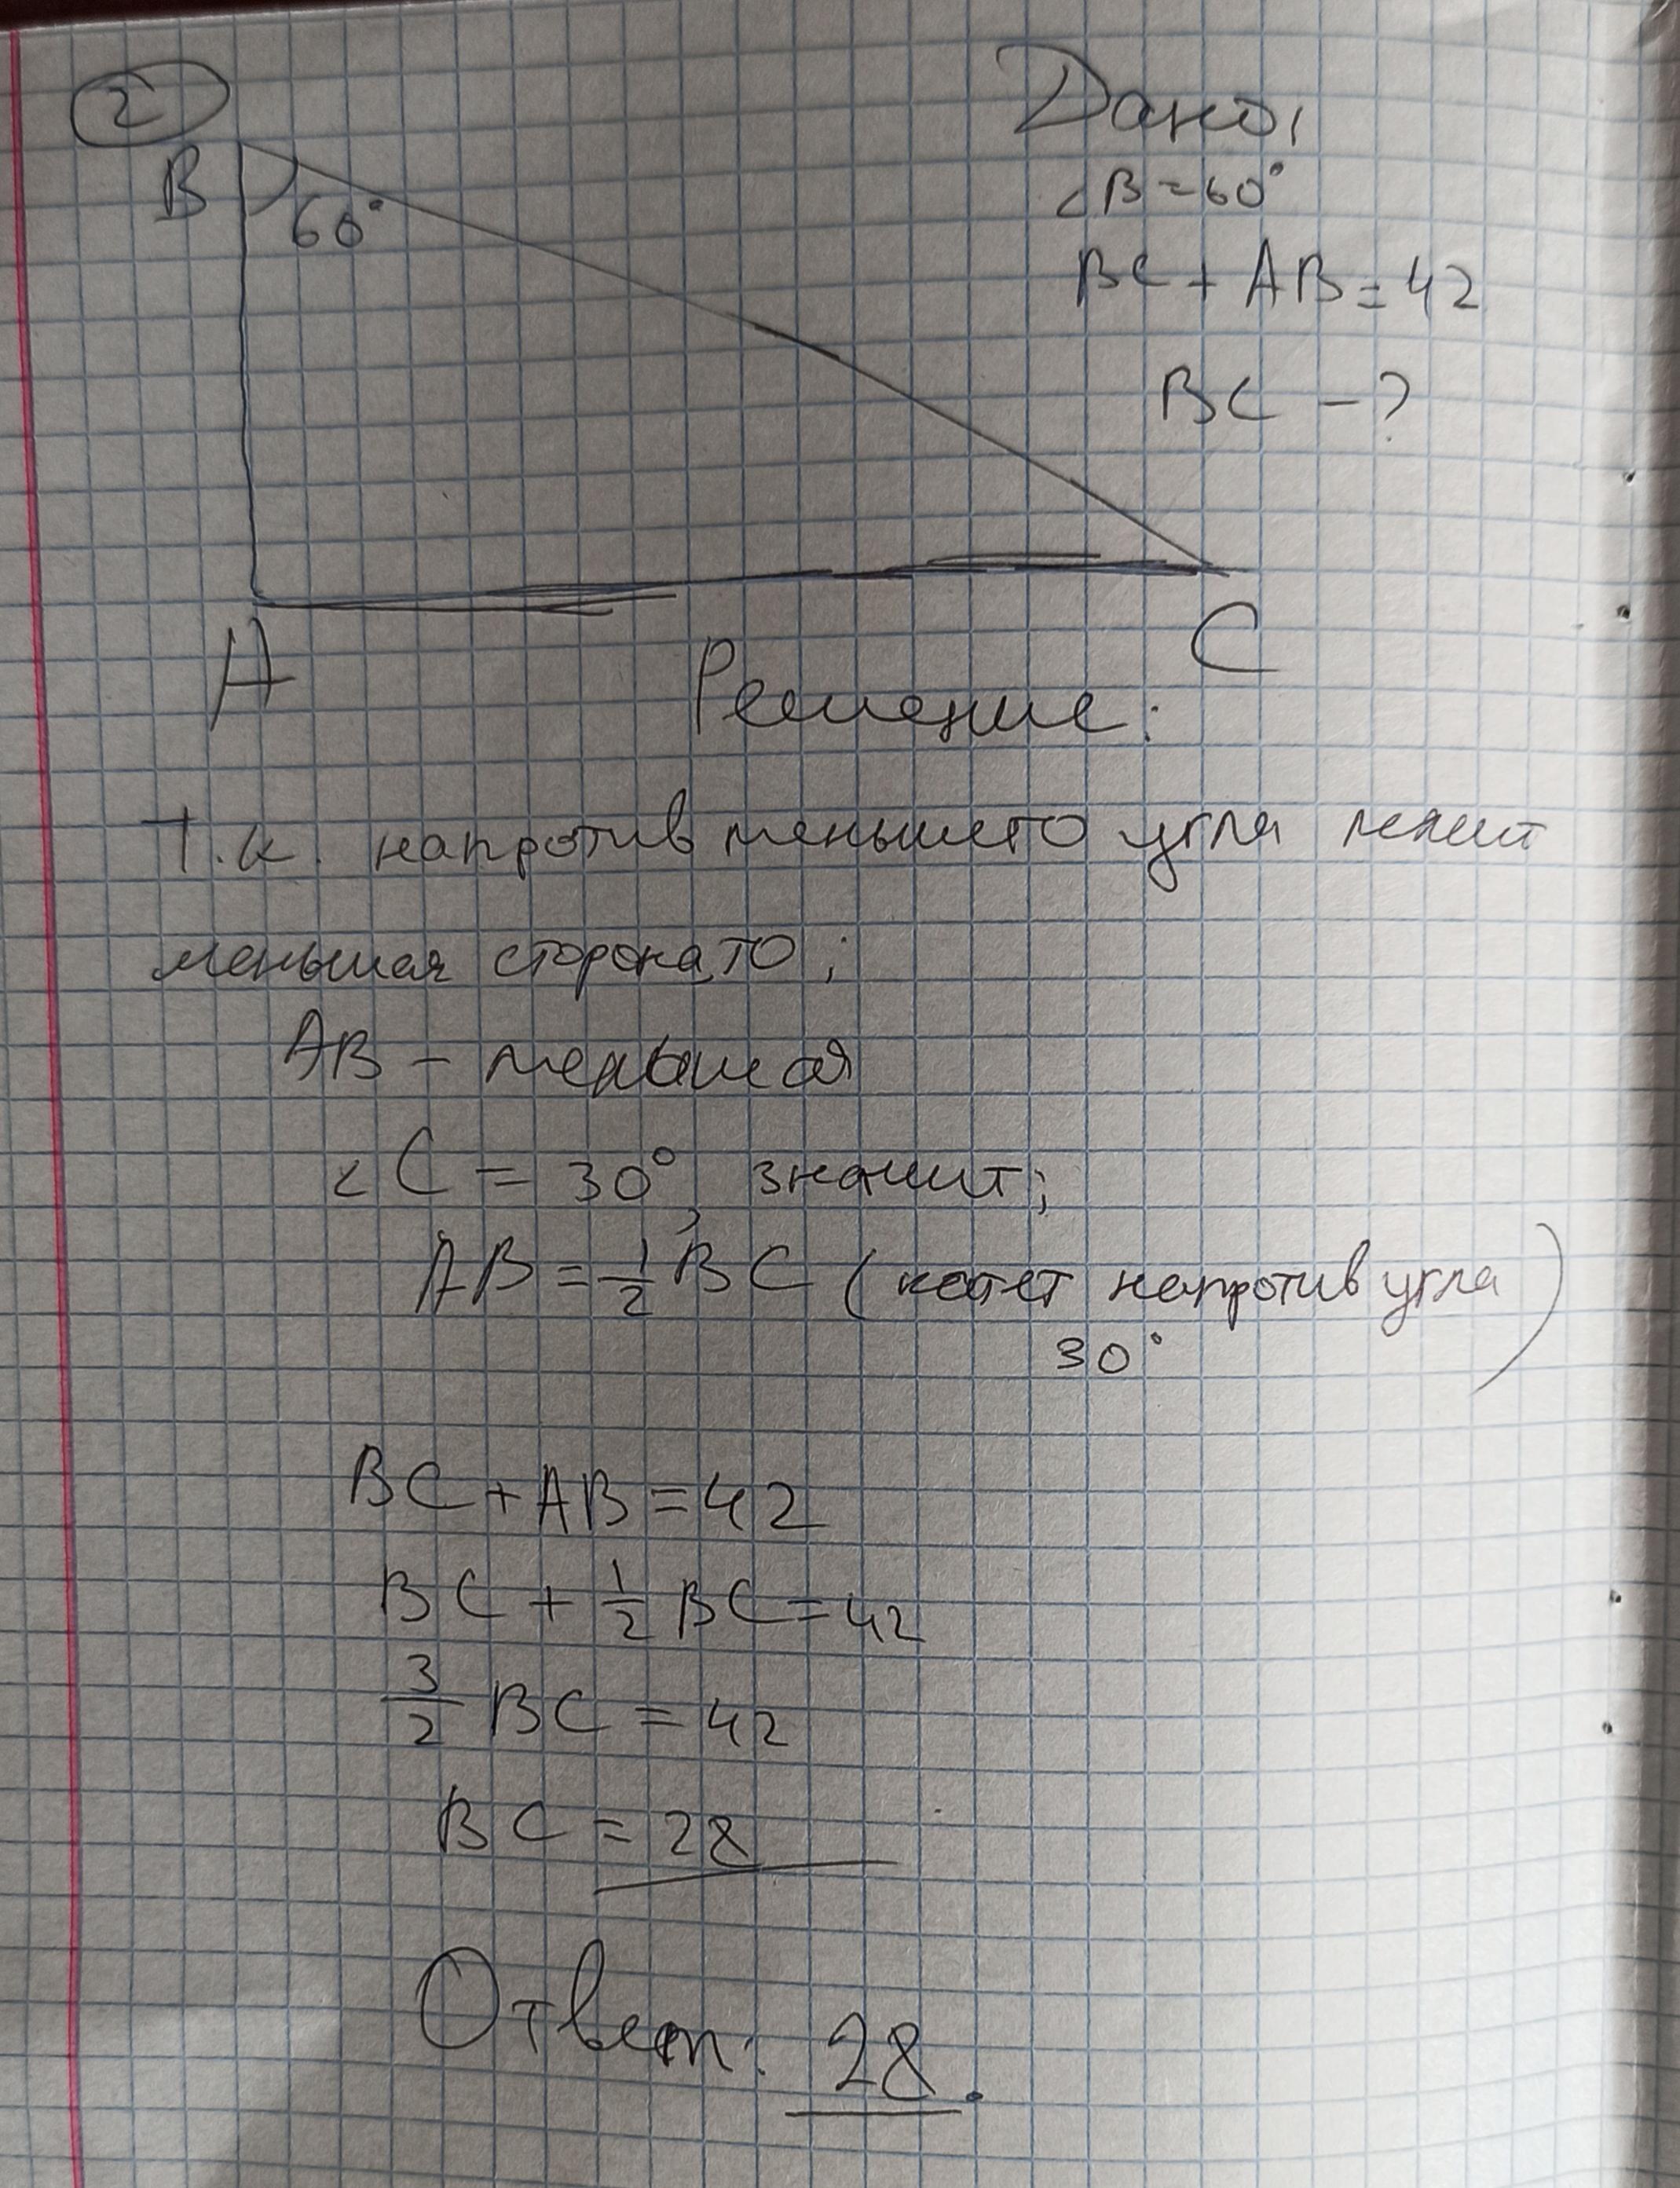 2
Дано:
B
60°
∠B=60°
BC + AB = 42
BC - ?
A
C
Решение:
Т.к. напротив меньшего угла лежит
меньшая сторона, то;
AB - меньшая
∠C = 30°, значит;
AB = 1/2 BC (катет напротив угла
30°)
BC + AB = 42
BC + 1/2 BC = 42
3/2 BC = 42
BC = 28
Ответ: 28.